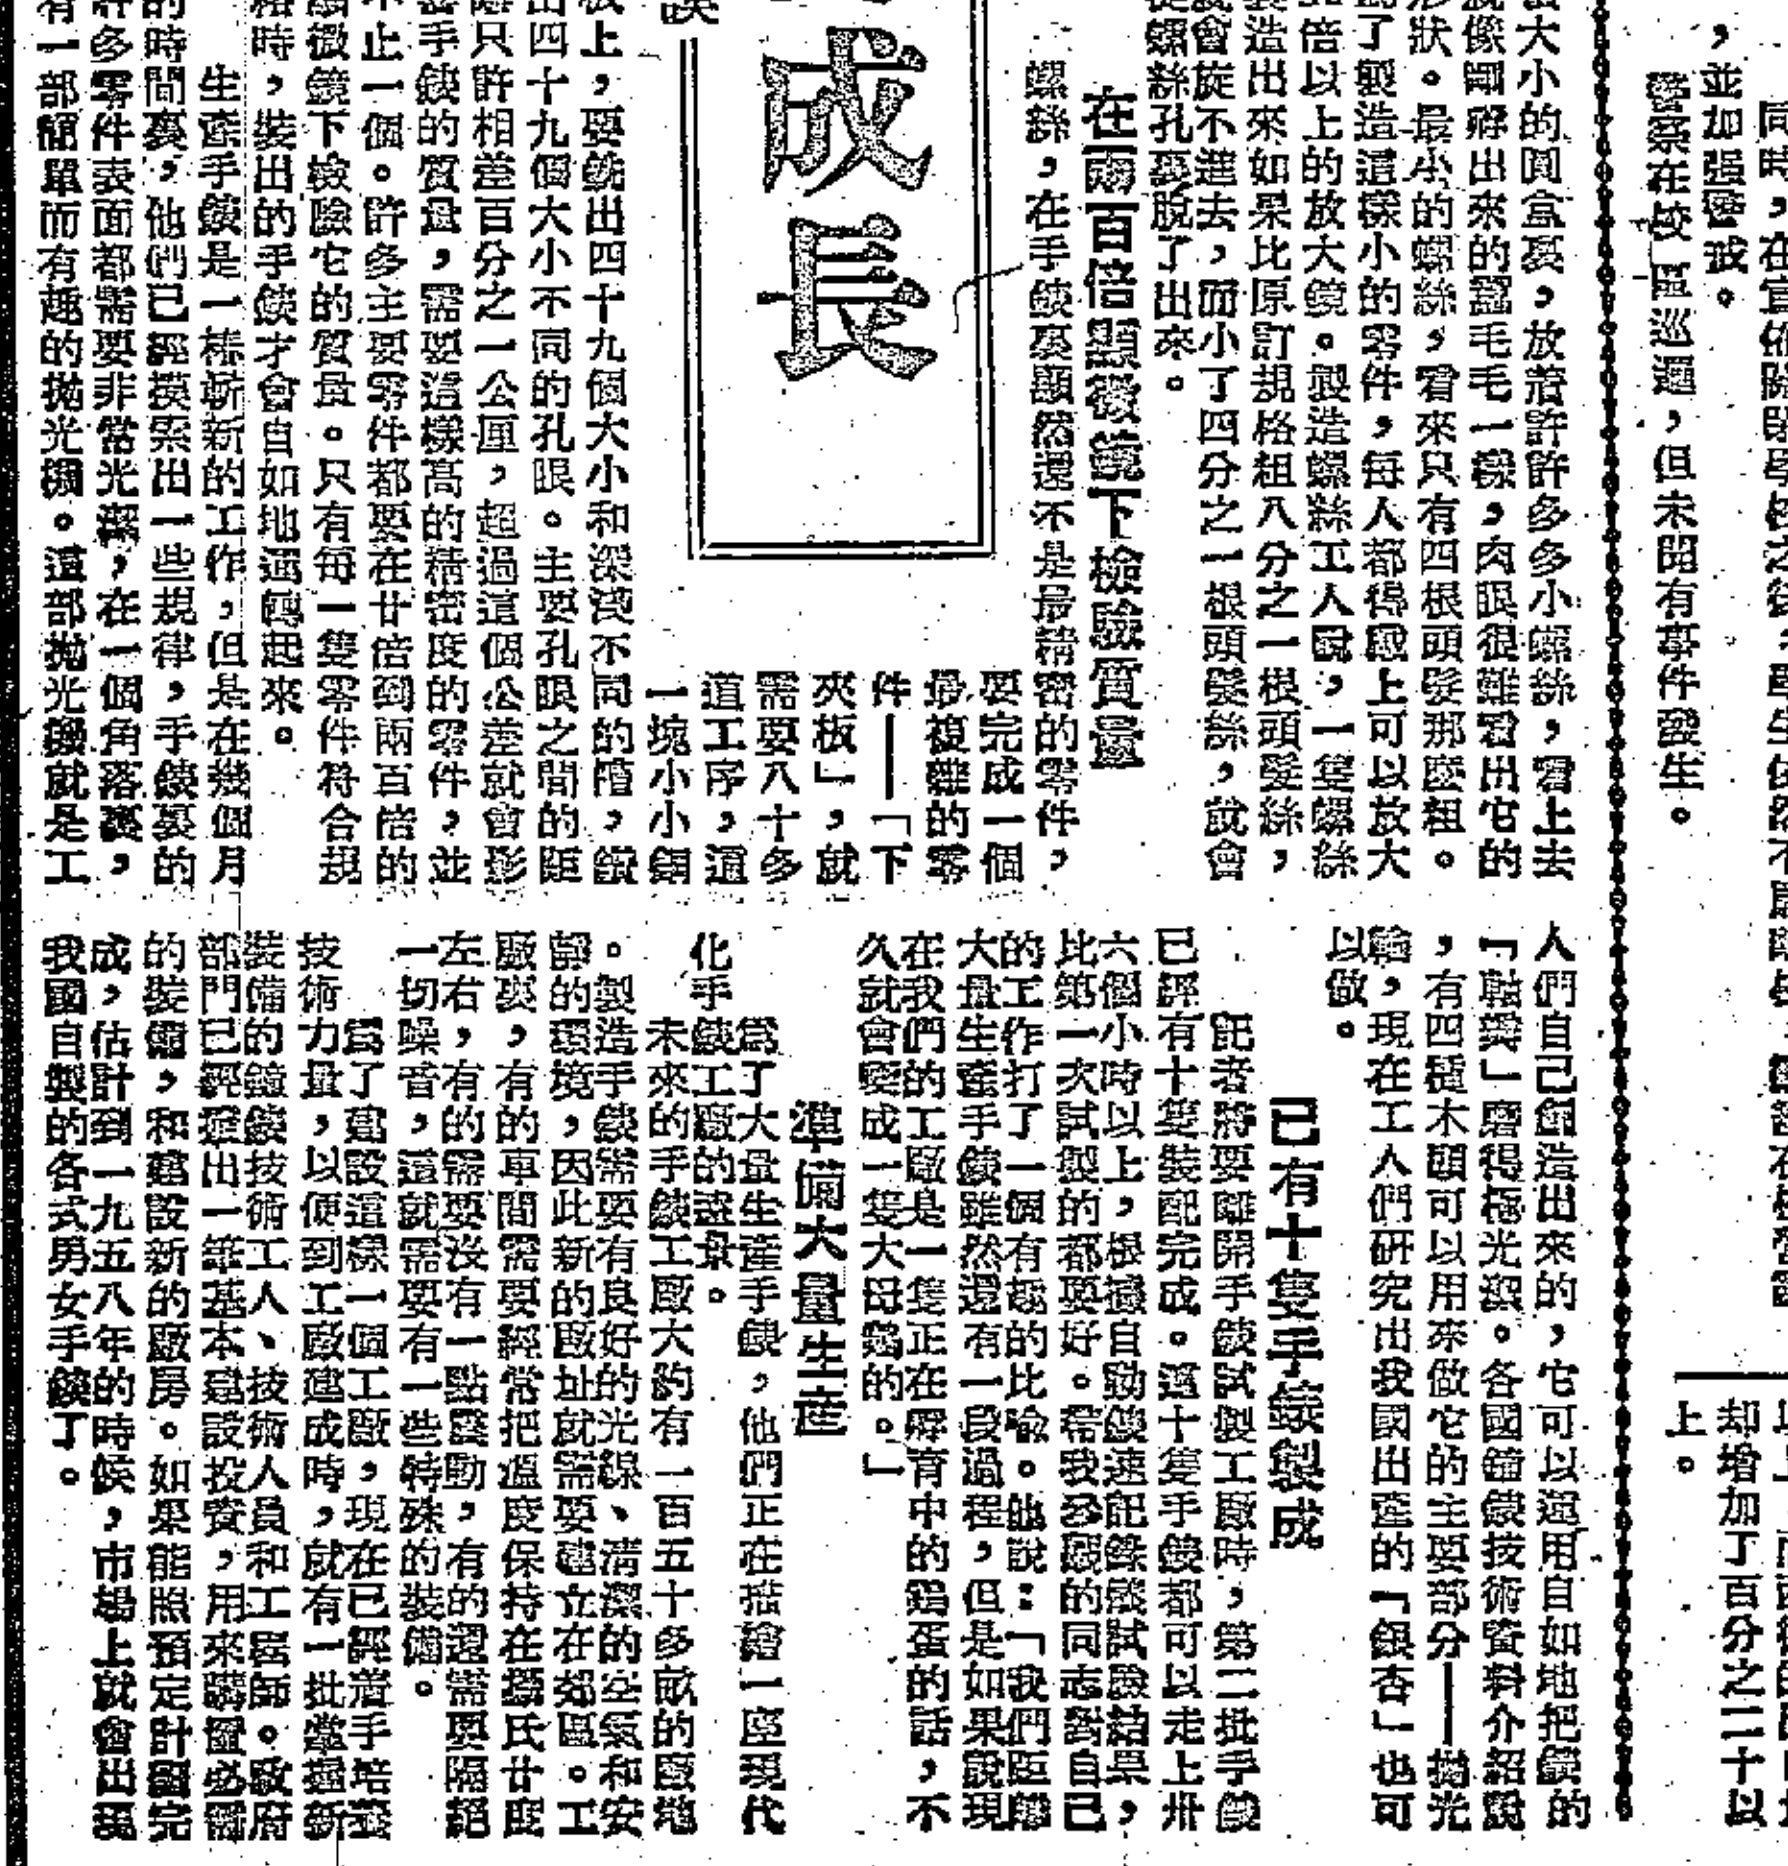 同時，在宣佈關閉學校之後，
，並加强警戒。
警察在校區巡邏，但未聞有事件發生。
却增加了百分之二十以
上。
大小的圓盒裏，放着許許多多小螺絲，看上去
像剛孵出來的蠶毛毛一樣，肉眼很難看出它的
形狀。最小的螺絲，看來只有四根頭髮那麼粗。
爲了製造這樣小的零件，每人都得戴上可以放大
倍以上的放大鏡。製造螺絲工人說，一隻螺絲
製造出來如果比原訂規格粗八分之一根頭髮絲，
就會旋不進去，而小了四分之一根頭髮絲，就會
從螺絲孔裏脫了出來。
在兩百倍顯微鏡下檢驗質量
螺絲，在手錶裏顯然還不是最精密的零件，
要完成一個
最複雜的零
件——「下
夾板」，就
需要八十多
道工序，這
一塊小小銅
成長
板上，要銑出四十九個大小和深淺不同的槽，鑽
出四十九個大小不同的孔眼。主要孔眼之間的距
離只許相差百分之一公厘，超過這個公差就會影
響手錶的質量，需要這樣高的精密度的零件，並
不止一個。許多主要零件都要在廿倍到兩百倍的
顯微鏡下檢驗它的質量。只有每一隻零件符合規
格時，裝出的手錶才會自如地運轉起來。
生產手錶是一樁嶄新的工作，但是在幾個月
的時間裏，他們已經摸索出一些規律，手錶裏的
許多零件表面都需要非常光潔，在一個角落裏，
有一部簡單而有趣的拋光機。這部拋光機就是工
人們自己創造出來的，它可以運用自如地把錶的
「軸榫」磨得極光潔。各國鐘錶技術資料介紹說
，有四種木頭可以用來做它的主要部分——拋光
輪，現在工人們研究出我國出產的「銀杏」也可
以做。
已有十隻手錶製成
記者將要離開手錶試製工廠時，第二批手錶
已經有十隻裝配完成。這十隻手錶都可以走上卅
六個小時以上，根據自動錶速記錄儀試驗結果，
比第一次試製的都要好。帶我參觀的同志對自己
的工作打了一個有趣的比喻。他說：「我們距離
大量生產手錶雖然還有一段過程，但是如果說現
在我們的工廠是一隻正在孵育中的鷄蛋的話，不
久就會變成一隻大母鷄的。」
準備大量生産
爲了大量生產手錶，他們正在描繪一座現代
化手錶工廠的遠景。
未來的手錶工廠大約有一百五十多畝的廠地
。製造手錶需要有良好的光線、清潔的空氣和安
靜的環境，因此新的廠址就需要建立在郊區。工
廠裏，有的車間需要經常把溫度保持在攝氏廿度
左右，有的需要沒有一點震動，有的還需要隔絕
一切噪音，這就需要有一些特殊的裝備。
爲了建設這樣一個工廠，現在已經着手培養
技術力量，以便到工廠建成時，就有一批掌握新
裝備的鐘錶技術工人、技術人員和工程師。政府
部門已經撥出一筆基本建設投資，用來購置必需
的裝備，和建設新的廠房。如果能照預定計劃完
成，估計到一九五八年的時候，市場上就會出現
我國自製的各式男女手錶了。